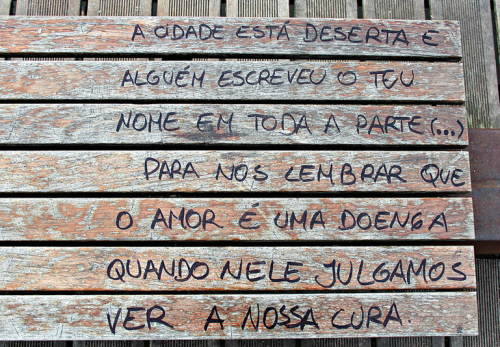 A CIDADE ESTÁ DESERTA E
ALGUÉM ESCREVEU O TEU
NOME EM TODA A PARTE (...)
PARA NOS LEMBRAR QUE
O AMOR É UMA DOENÇA
QUANDO NELE JULGAMOS
VER A NOSSA CURA.